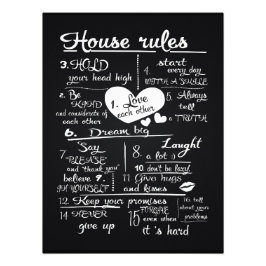 House rules
3. HOLD
your head high
4. start
every day
WITH A SMILE
2. Be
KIND
and considerate
of each other
1. Love
each other
5. Always
tell
a TRUTH
6. Dream big
7. "Say
PLEASE
and "thank you"
8. Laught
a lot
9. believe
IN YOURSELF
10. don't be
11. Give hugs
and kisses
12. Keep your promises
14 NEVER
give up
15 FORGIVE
even when
it's hard
16. tell
about your
problems